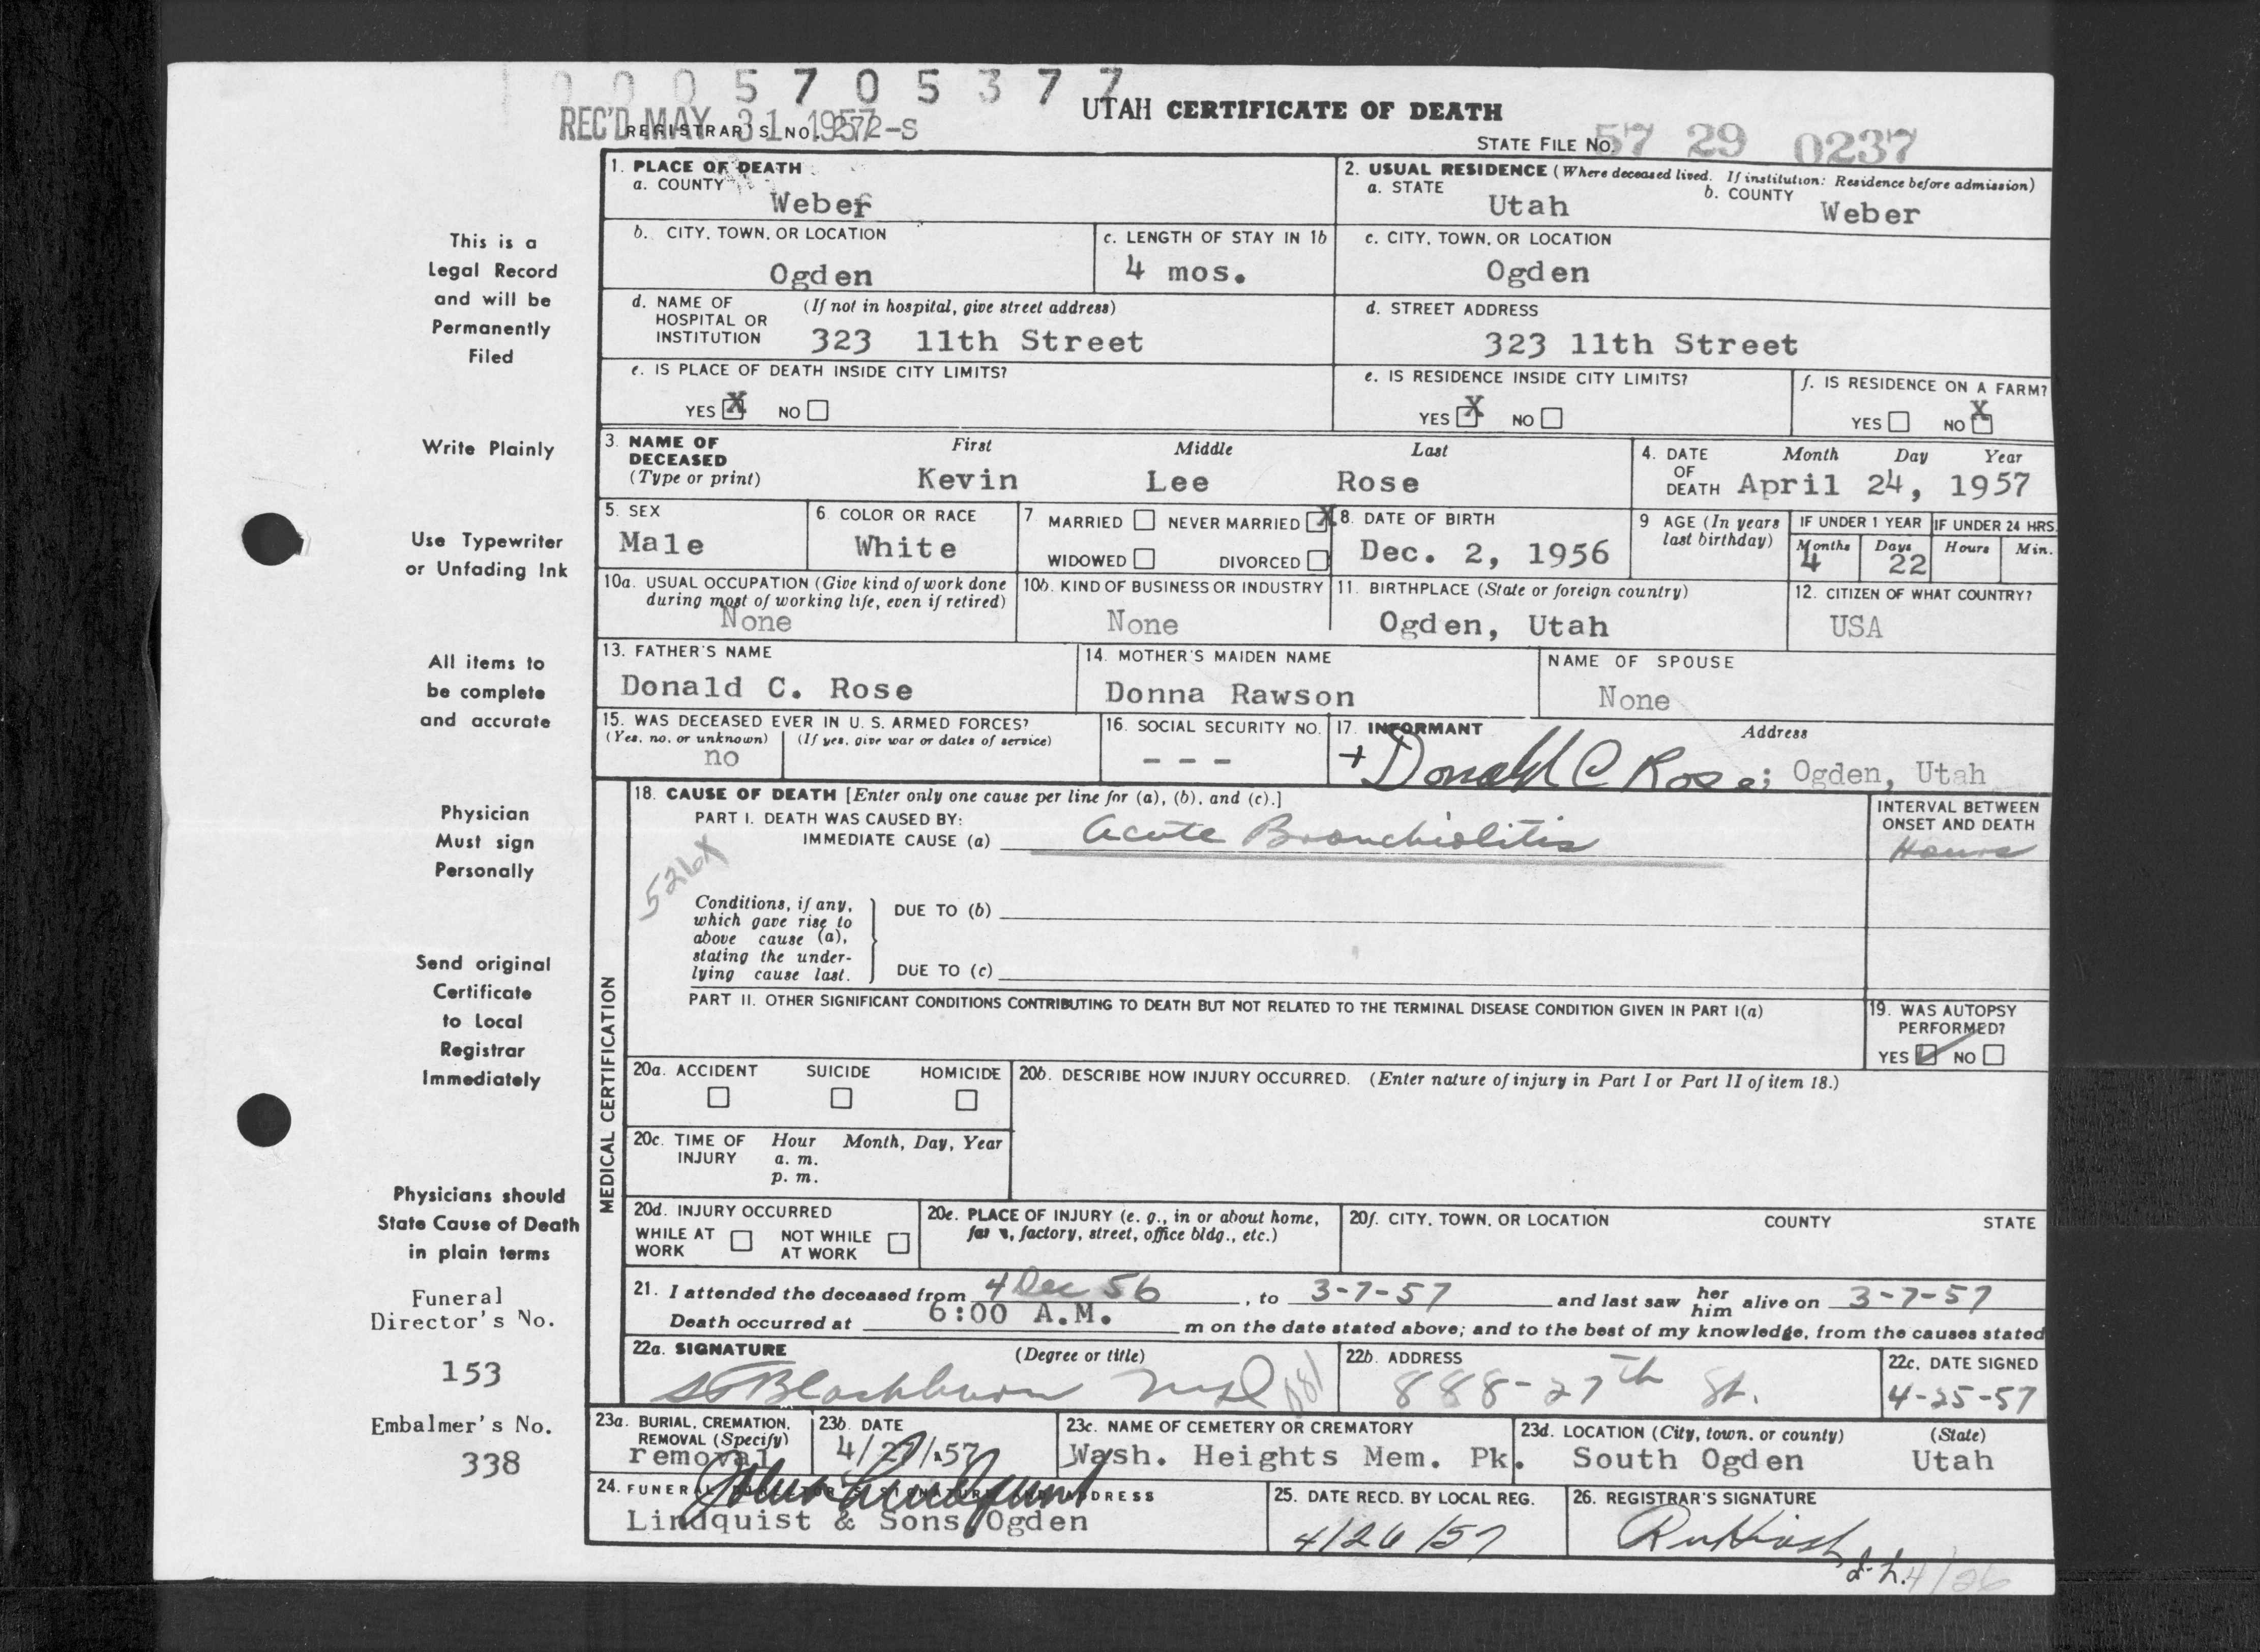 0 0 0 5 7 0 5 3 7 7
UTAH CERTIFICATE OF DEATH
REC'D MAY 31 1957
REGISTRAR'S NO. 272-S
STATE FILE NO. 57 29 0237
This is a
Legal Record
and will be
Permanently
Filed
Write Plainly
Use Typewriter
or Unfading Ink
All items to
be complete
and accurate
Physician
Must sign
Personally
Send original
Certificate
to Local
Registrar
Immediately
Physicians should
State Cause of Death
in plain terms
Funeral
Director's No.
153
Embalmer's No.
338
1. PLACE OF DEATH
a. COUNTY
Weber
2. USUAL RESIDENCE (Where deceased lived. If institution: Residence before admission)
a. STATE
Utah
b. COUNTY
Weber
b. CITY, TOWN, OR LOCATION
Ogden
c. LENGTH OF STAY IN 1b
4 mos.
c. CITY, TOWN, OR LOCATION
Ogden
d. NAME OF HOSPITAL OR INSTITUTION
(If not in hospital, give street address)
323 11th Street
d. STREET ADDRESS
323 11th Street
e. IS PLACE OF DEATH INSIDE CITY LIMITS?
YES X NO
e. IS RESIDENCE INSIDE CITY LIMITS?
YES X NO
f. IS RESIDENCE ON A FARM?
YES NO X
3. NAME OF DECEASED (Type or print)
First Middle Last
Kevin Lee Rose
4. DATE OF DEATH
Month Day Year
April 24, 1957
5. SEX
Male
6. COLOR OR RACE
White
7. MARRIED NEVER MARRIED X
WIDOWED DIVORCED
8. DATE OF BIRTH
Dec. 2, 1956
9 AGE (In years last birthday)
IF UNDER 1 YEAR
Months Days
4 22
IF UNDER 24 HRS.
Hours Min.
10a. USUAL OCCUPATION (Give kind of work done during most of working life, even if retired)
None
10b. KIND OF BUSINESS OR INDUSTRY
None
11. BIRTHPLACE (State or foreign country)
Ogden, Utah
12. CITIZEN OF WHAT COUNTRY?
USA
13. FATHER'S NAME
Donald C. Rose
14. MOTHER'S MAIDEN NAME
Donna Rawson
NAME OF SPOUSE
None
15. WAS DECEASED EVER IN U. S. ARMED FORCES?
(Yes, no, or unknown) (If yes, give war or dates of service)
no
16. SOCIAL SECURITY NO.
- - -
17. INFORMANT Address
+ Donald C Rose; Ogden, Utah
MEDICAL CERTIFICATION
18. CAUSE OF DEATH [Enter only one cause per line for (a), (b), and (c).]
PART I. DEATH WAS CAUSED BY:
IMMEDIATE CAUSE (a) Acute Bronchiolitis
INTERVAL BETWEEN ONSET AND DEATH
Hours
526X
Conditions, if any, which gave rise to above cause (a), stating the underlying cause last.
DUE TO (b)
DUE TO (c)
PART II. OTHER SIGNIFICANT CONDITIONS CONTRIBUTING TO DEATH BUT NOT RELATED TO THE TERMINAL DISEASE CONDITION GIVEN IN PART I(a)
19. WAS AUTOPSY PERFORMED?
YES NO
20a. ACCIDENT SUICIDE HOMICIDE
20b. DESCRIBE HOW INJURY OCCURRED. (Enter nature of injury in Part I or Part II of item 18.)
20c. TIME OF INJURY
Hour Month, Day, Year
a. m.
p. m.
20d. INJURY OCCURRED
WHILE AT WORK NOT WHILE AT WORK
20e. PLACE OF INJURY (e. g., in or about home, farm, factory, street, office bldg., etc.)
20f. CITY, TOWN, OR LOCATION COUNTY STATE
21. I attended the deceased from 4 Dec 56, to 3-7-57 and last saw her him alive on 3-7-57
Death occurred at 6:00 A.M. m on the date stated above; and to the best of my knowledge, from the causes stated
22a. SIGNATURE (Degree or title)
Blackburn MD 081
22b. ADDRESS
888-27th St.
22c. DATE SIGNED
4-25-57
23a. BURIAL, CREMATION, REMOVAL (Specify)
removal
23b. DATE
4/27/57
23c. NAME OF CEMETERY OR CREMATORY
Wash. Heights Mem. Pk.
23d. LOCATION (City, town, or county) (State)
South Ogden Utah
24. FUNERAL DIRECTOR'S SIGNATURE AND ADDRESS
John Lindquist
Lindquist & Sons Ogden
25. DATE RECD. BY LOCAL REG.
4/26/57
26. REGISTRAR'S SIGNATURE
4/26